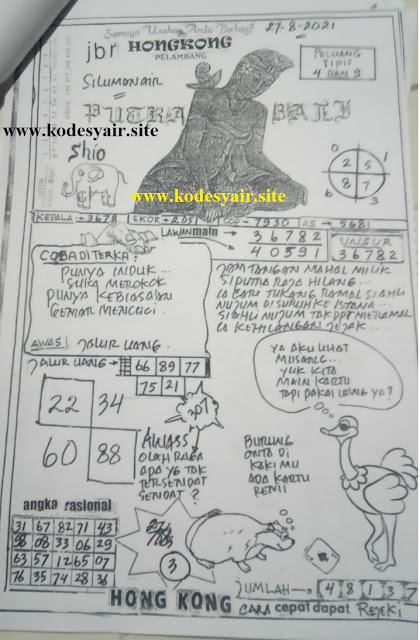 Semoga Usaha Anda Berhasil
27-8-2021
jbr HONGKONG
PELAMBANG
PELUANG
TIPIS
4 DAN 9
SILUMAN AIR
PUTRA BALI
www.kodesyair.site
Shio
www.kodesyair.site
0
2 5 1
6 8 7 3
KEPALA = 3678 EKOR = 2051 7930 AS = 5681
LAWAN main
3 6 7 8 2
4 0 5 9 1
UNSUR
3 6 7 8 2
COBA DITERKA:
PUNYA INDUK...
SUKA MEROKOK
PUNYA KEBIASAAN
GEMAR MENCUCI...
AWAS! JALUR UANG.
JAM TANGAN MAHAL MILIK
SI PUTRA RAJA HILANG...
TUKANG RAMAL SI AHLI
NUJUM DISURUH KE ISTANA...
SI AHLI NUJUM TAK DPT MERAMAL
IA KEHILANGAN JEJAK...
JALUR UANG = 66 89 77
75 21
22 34
60 88
307
AWASS
OLAH RAGA
ADA YG TAK
TERSENDAT
SENDAT?
YA AKU LIHAT
MUSANG...
YUK KITA
MAIN KARTU
TAPI PAKAI UANG YA?
BURUNG
ONTA DI
KAKI MU
ADA KARTU
REMI
angka rasional
31 67 82 71 43
98 08 33 06 29
63 57 12 65 07
76 35 74 28 36
3
JUMLAH = 4 8 1 3 7
HONG KONG CARA cepat dapat REJEKI